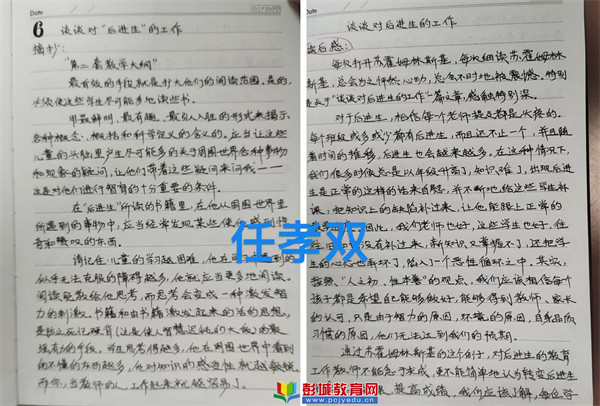 Date
6 谈谈对“后进生”的工作
摘抄:
“第二套教学大纲”
最有效的手段就是扩大他们的阅读范围。是的,
必须使这些学生尽可能多地读些书。
用最鲜明、最有趣、最引人入胜的形式来揭示
各种概念、概括和科学定义的含义的。应当让这些
儿童的头脑里产生尽可能多的关于周围世界各种事物
和现象的疑问,让他们带着这些疑问来问我——
这是对他们进行智育的十分重要的条件。
在“后进生”所读的书籍里,在他从周围世界里
所遇到的事物中,应当经常发现某些使他感到惊
奇和赞叹的东西。
请记住:儿童的学习越困难,他在学习中遇到的
似乎无法克服的障碍越多,他就应当更多地阅读。
阅读能教给他思考,而思考会变成一种激发智
力的刺激。书籍和由书籍激发起来的活的思想,
是防止死记硬背(这是使人智慧迟钝的大敌)的最
强有力的手段。学生思考得越多,他在周围世界中看到
的不懂的东西越多,他对知识的感受性就越敏锐,
而你,当教师的人,工作起来就越容易了。
Date
谈谈对后进生的工作
读后感:
每次打开苏霍姆林斯基,每次细读苏霍姆林
斯基,总会为之怦然心动,总会不时地被震憾。特别
是反了“谈谈对后进生的工作”一篇文章,感触特别深。
对于后进生,相信每个老师提及都是头疼的。
每个班级或多或少都有后进生,而且还不止一个,并且随
着时间的推移,后进生也会越来越多。在这种情况下,
我们很多时候总是以年级升高了,知识难了,出现后进
生是正常的这样的话来自慰,并不断地给这些学生补
课,把知识上的缺陷补过来,让他能跟上正常的
因此,我们老师也好,这些学生也好,往
没有补过来,新知识又掌握不了,还把学
生的心态也弄坏了,陷入了一个恶性循环之中。其实,
按照“人之初,性本善”的观点,我们应该相信每个
孩子都是希望自己能够做好,能够得到教师、家长
的认可,只是由于智力的原因,环境的原因,自身品质
习惯的原因,他们无法达到我们的预期。
通过苏霍姆林斯基的这个例子,对后进生的教育
工作教师不能急于求成,更不能简单地认为转变后进生
提高成绩,我们应该了解,每位学
任孝双
彭城教育网
www.pcjyedu.cn